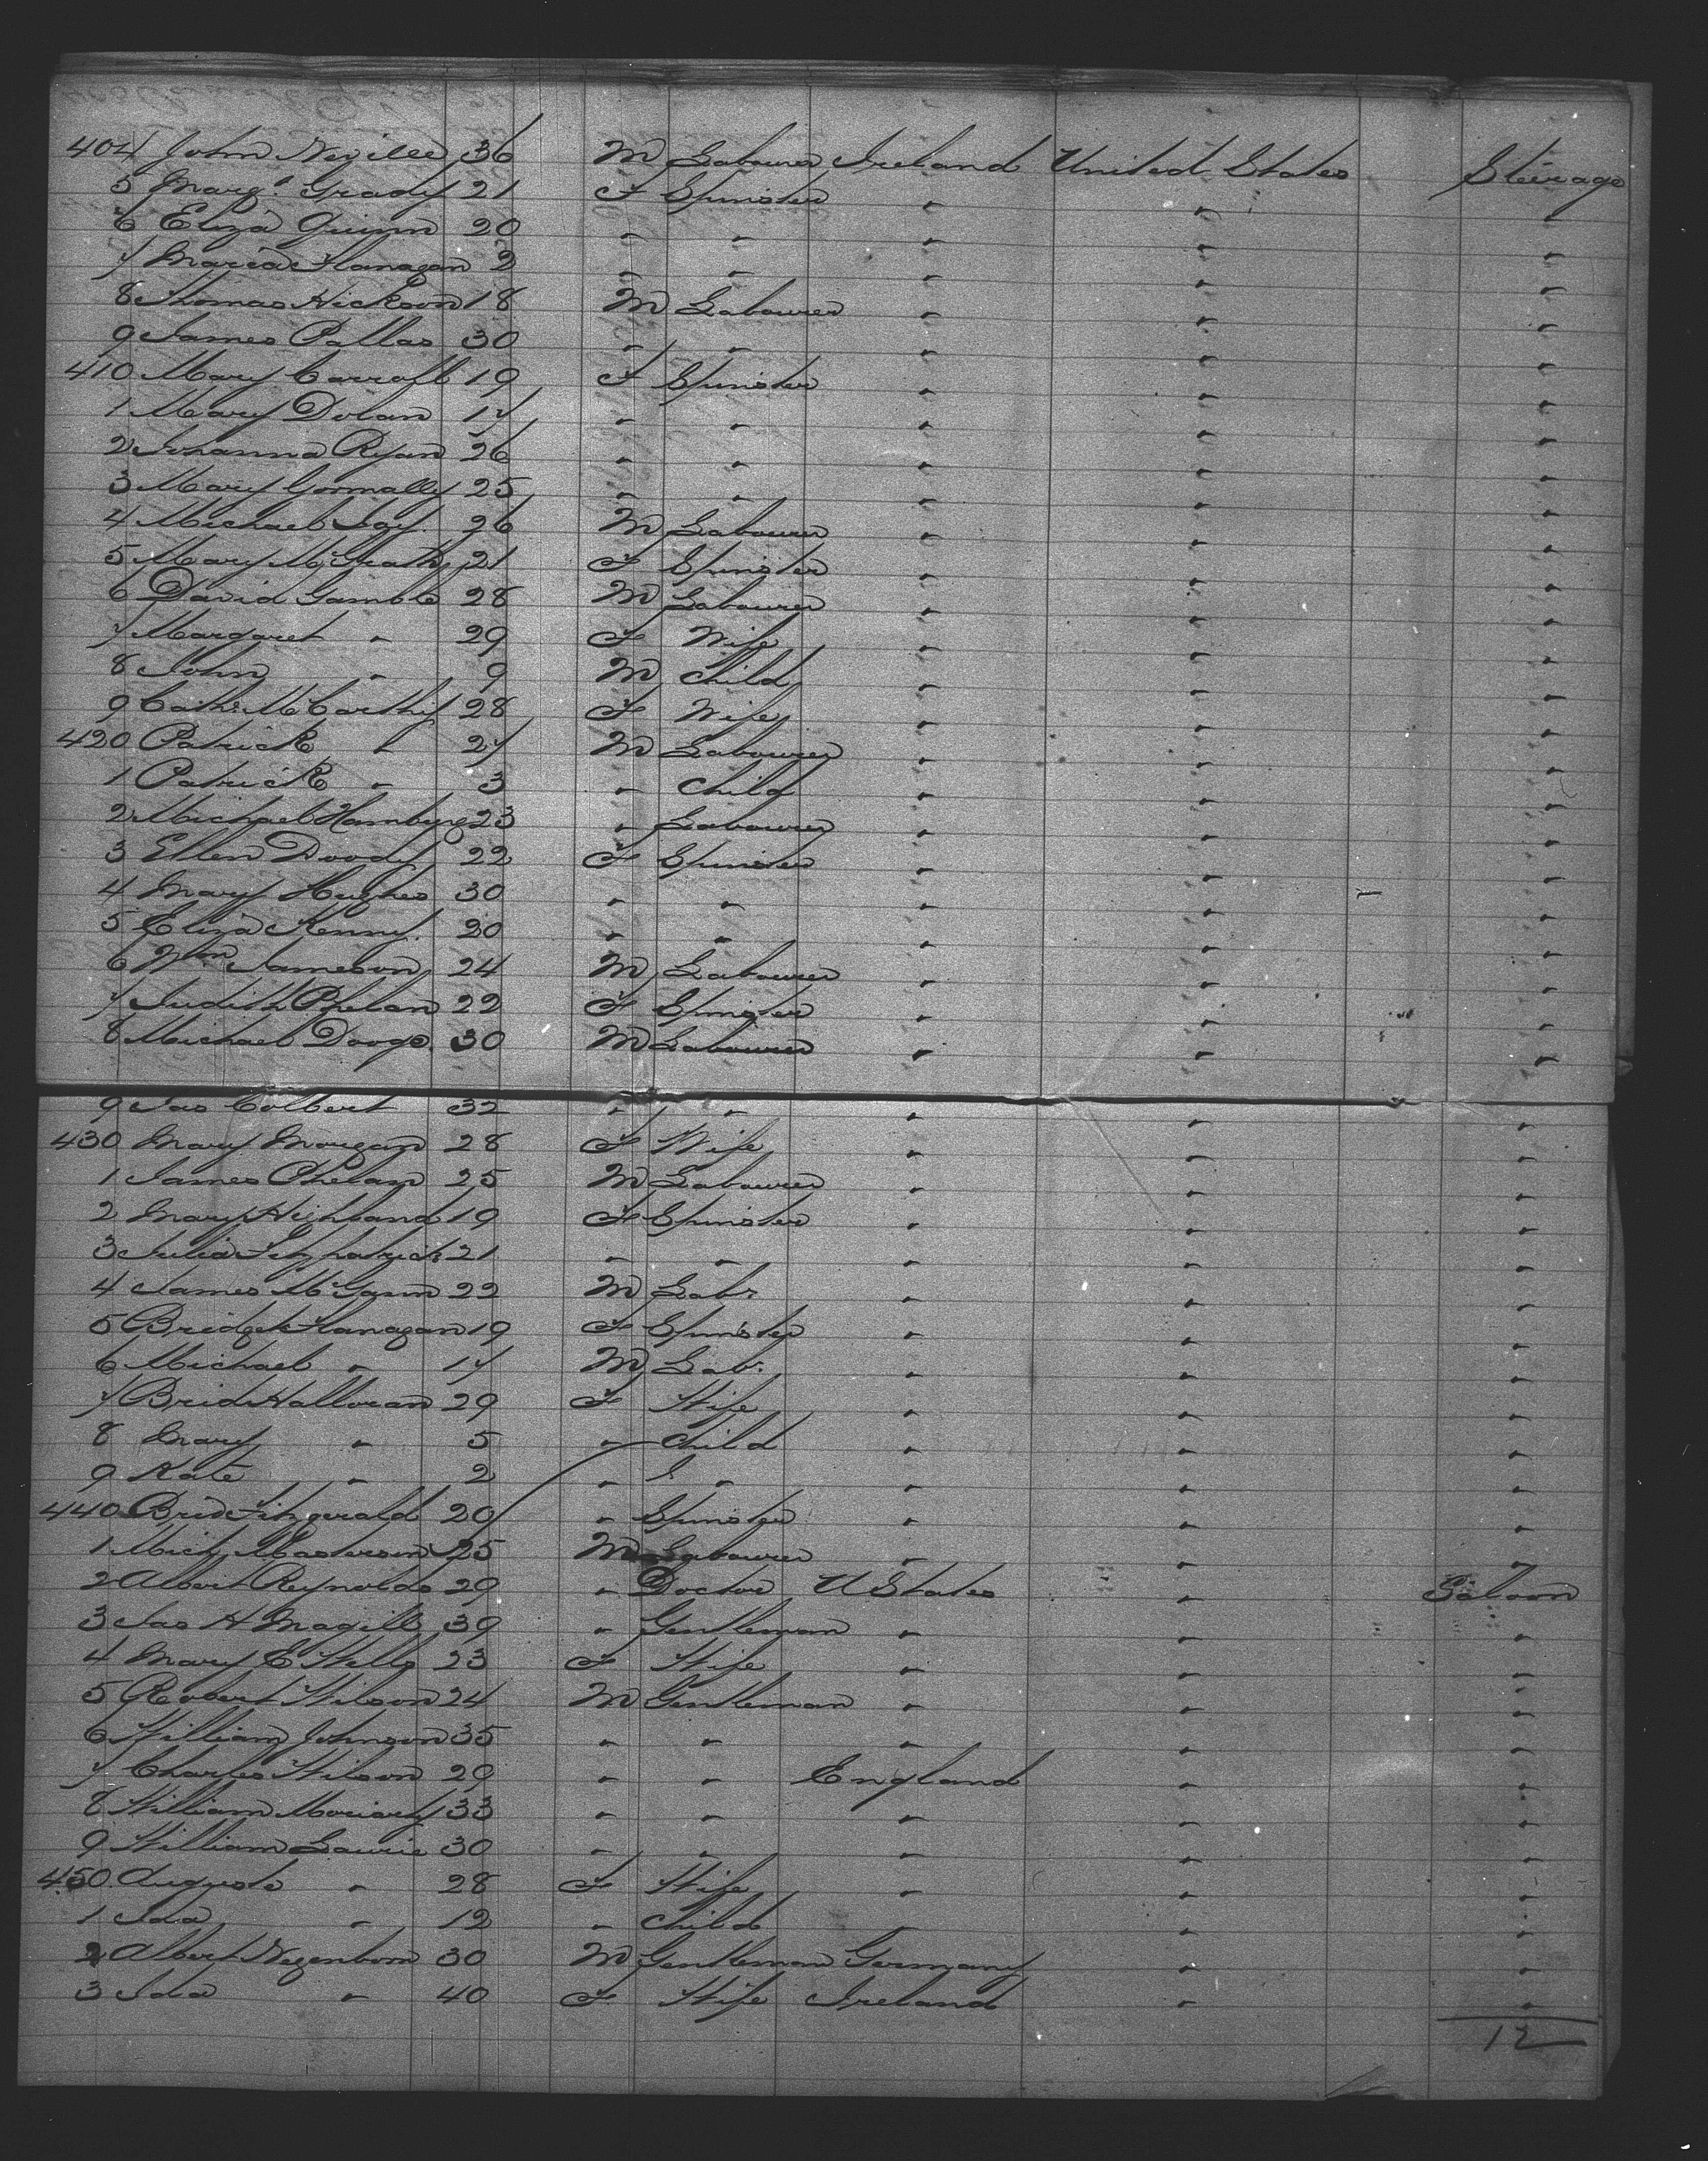 404 John Neville 36 M Labourer Ireland United States Steerage
5 Marg.t Grady 21 F Spinster " " "
6 Eliza Quinn 20 " " " " "
7 Maria Flanagan 2 " " " " "
8 Thomas Hickson 18 M Labourer " " "
9 James Pallas 30 " " " " "
410 Mary Carroll 19 F Spinster " " "
1 Mary Dolan 17 " " " " "
2 Johanna Ryan 26 " " " " "
3 Mary Gormally 25 " " " " "
4 Michael 26 M Labourer " " "
5 Mary McGrath 21 F Spinster " " "
6 David Gamble 28 M Labourer " " "
7 Margaret " 29 F Wife " " "
8 John " 9 M Child " " "
9 Cath McCarthy 28 F Wife " " "
420 Patrick " 27 M Labourer " " "
1 Patrick " 3 " Child " " "
2 Michael 23 " Labourer " " "
3 Ellen Doody 22 F Spinster " " "
4 Mary Hughes 30 " " " " "
5 Eliza Kenny 20 " " " " "
6 Wm Jameson 24 M Labourer " " "
7 Judith Phelan 22 F Spinster " " "
8 Michael 30 M Labourer " " "
9 Jas Colbert 32 " " " " "
430 Mary Mangan 28 F Wife " " "
1 James Phelan 25 M Labourer " " "
2 Mary Highland 19 F Spinster " " "
3 Julia Fitzpatrick 21 " " " " "
4 James McGann 22 M Labr " " "
5 Bridget Flanagan 19 F Spinster " " "
6 Michael " 17 M Labr " " "
7 Brid Halloran 29 F Wife " " "
8 Mary " 5 " Child " " "
9 Kate " 2 " " " " "
440 Brid Fitzgerald 20 " Spinster " " "
1 Mich Masterson 25 M Labourer " " "
2 Albert Reynolds 29 " Doctor U States " Saloon
3 Jas H Magill 39 " Gentleman " " "
4 Mary E Wells 23 F Wife " " "
5 Robert Wilson 24 M Gentleman " " "
6 William Johnson 35 " " " " "
7 Charles Wilson 29 " " England " "
8 William Moriarty 33 " " " " "
9 William Laurie 30 " " " " "
450 Augusta " 28 F Wife " " "
1 Ida " 12 " Child " " "
2 Albert Negenborn 30 M Gentleman Germany " "
3 Ida " 40 F Wife Ireland " "
12